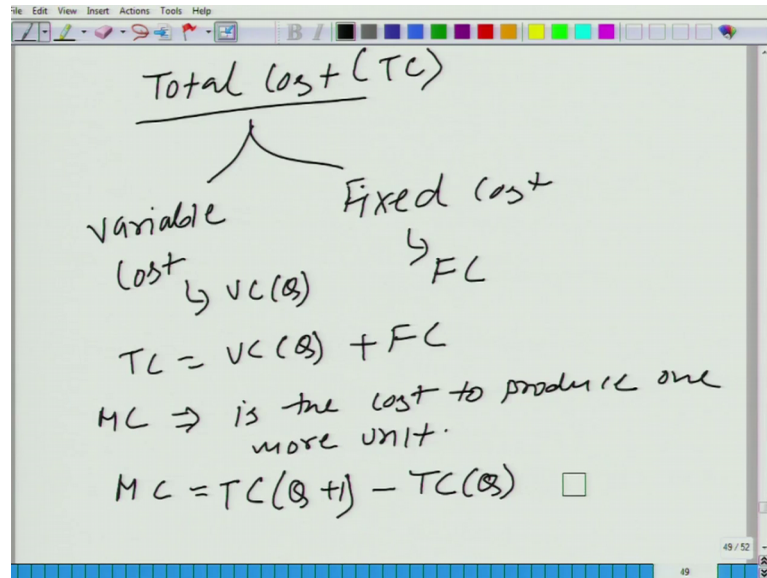 ile Edit View Insert Actions Tools Help
B I
Total Cost (TC)
Variable Fixed Cost
Cost
↳ VC(Q) ↳ FC
TC = VC(Q) + FC
MC ⇒ is the cost to produce one
more unit.
MC = TC(Q+1) - TC(Q)
49 / 52
49